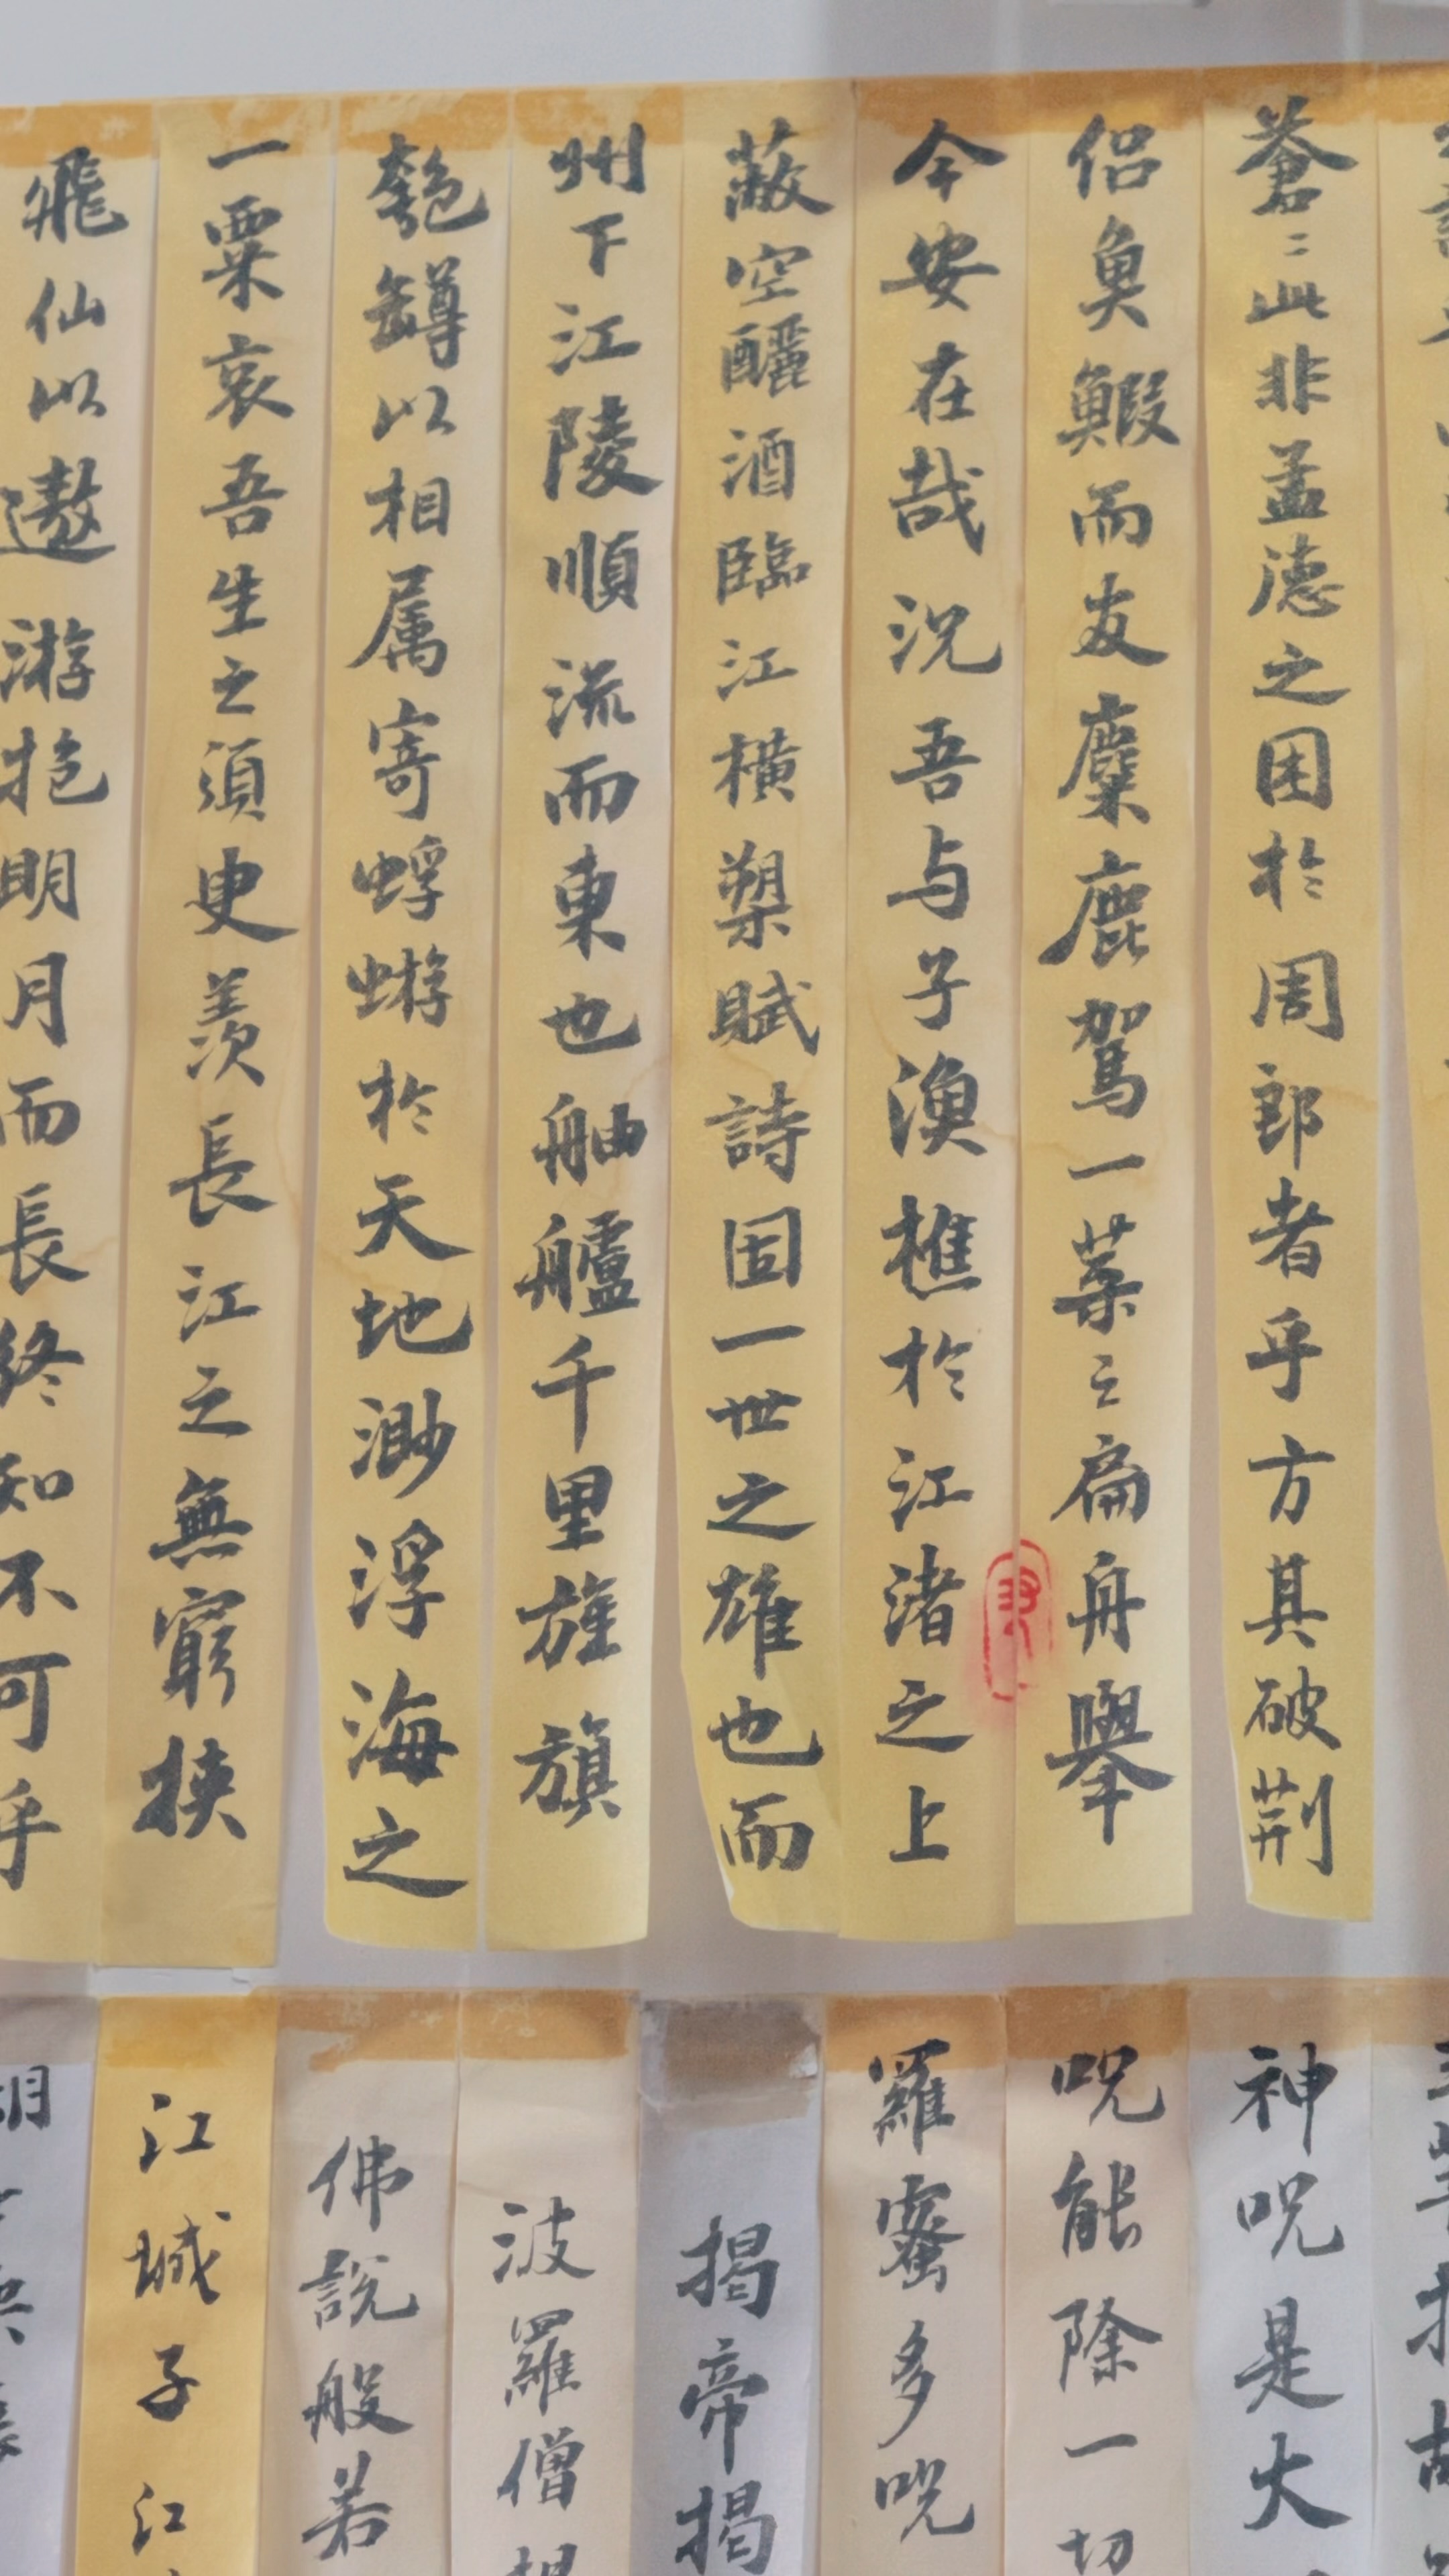 蒼〻此非孟德之困於周郎者乎方其破荆
侣魚鰕而友麋鹿駕一葉之扁舟舉
今安在哉況吾与子渔樵於江渚之上
蔽空釃酒臨江橫槊賦詩固一世之雄也而
州下江陵順流而東也舳艫千里旌旗
匏罇以相属寄蜉蝣於天地渺浮海之
一粟哀吾生之須臾羨長江之無窮挟
飛仙以遨游抱明月而長終知不可乎
神呪是大
呪能除一切
羅蜜多呪
揭帝揭
波羅僧揭
佛說般若
江城子江